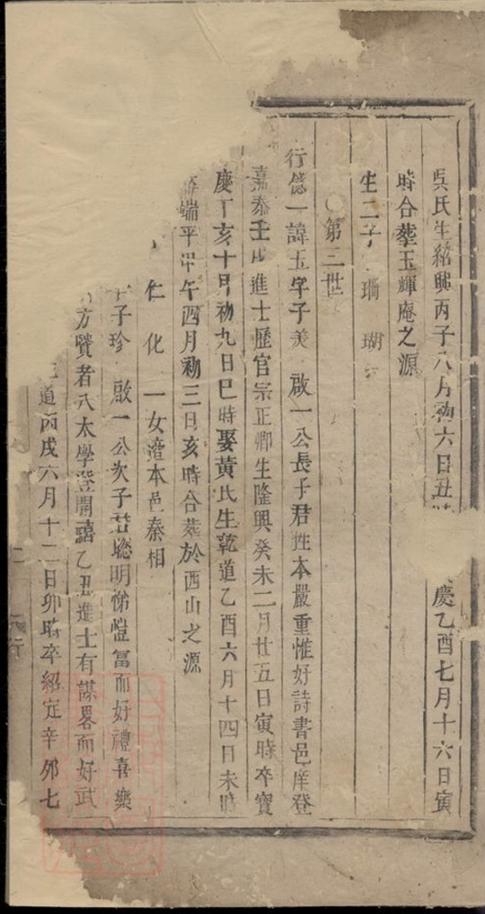 吳氏生紹興丙子八月初六日丑 慶乙酉七月十六日寅
時合葬玉輝庵之源
生二子 珊 瑚
○第三世
行億一諱玉字子美 啟一公長子君性本嚴重惟好詩書邑庠登
嘉泰壬戌進士歷官宗正卿生隆興癸未二月廿五日寅時卒寶
慶丁亥十月初九日巳時娶黃氏生乾道乙酉六月十四日未時
端平甲午四月初三日亥時合葬於西山之源
仁 化 一女適本邑秦相
字子珍 啟一公次子君聰明悌愷富而好禮喜樂
方賢者入太學登開禧乙丑進士有謀畧而好武
道丙戌六月十二日卯時卒紹定辛卯七